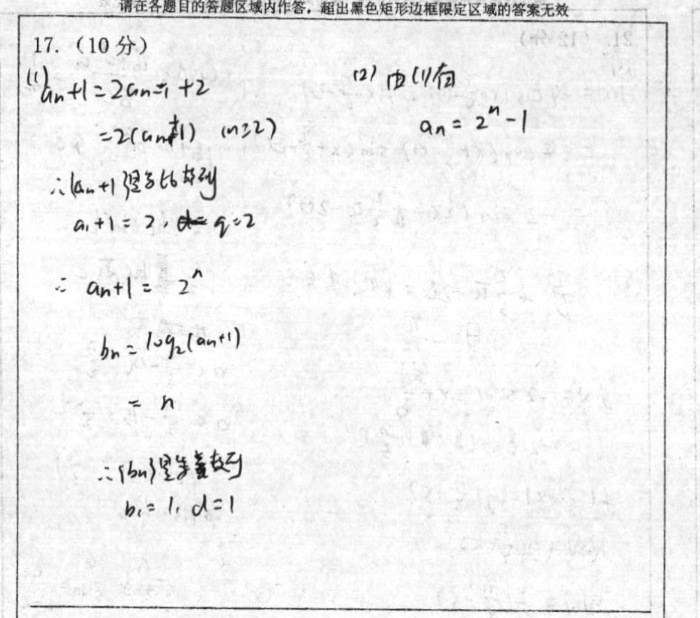 请在各题目的答题区域内作答，超出黑色矩形边框限定区域的答案无效
17.（10 分）
(1) an+1=2an-1+2
=2(an-1+1) (n≥2)
∴{an+1}是等比数列
a1+1=2, q=2
∴ an+1= 2^n
bn=log2(an+1)
= n
∴{bn}是等差数列
b1=1, d=1
(2) 由(1)有
an=2^n-1